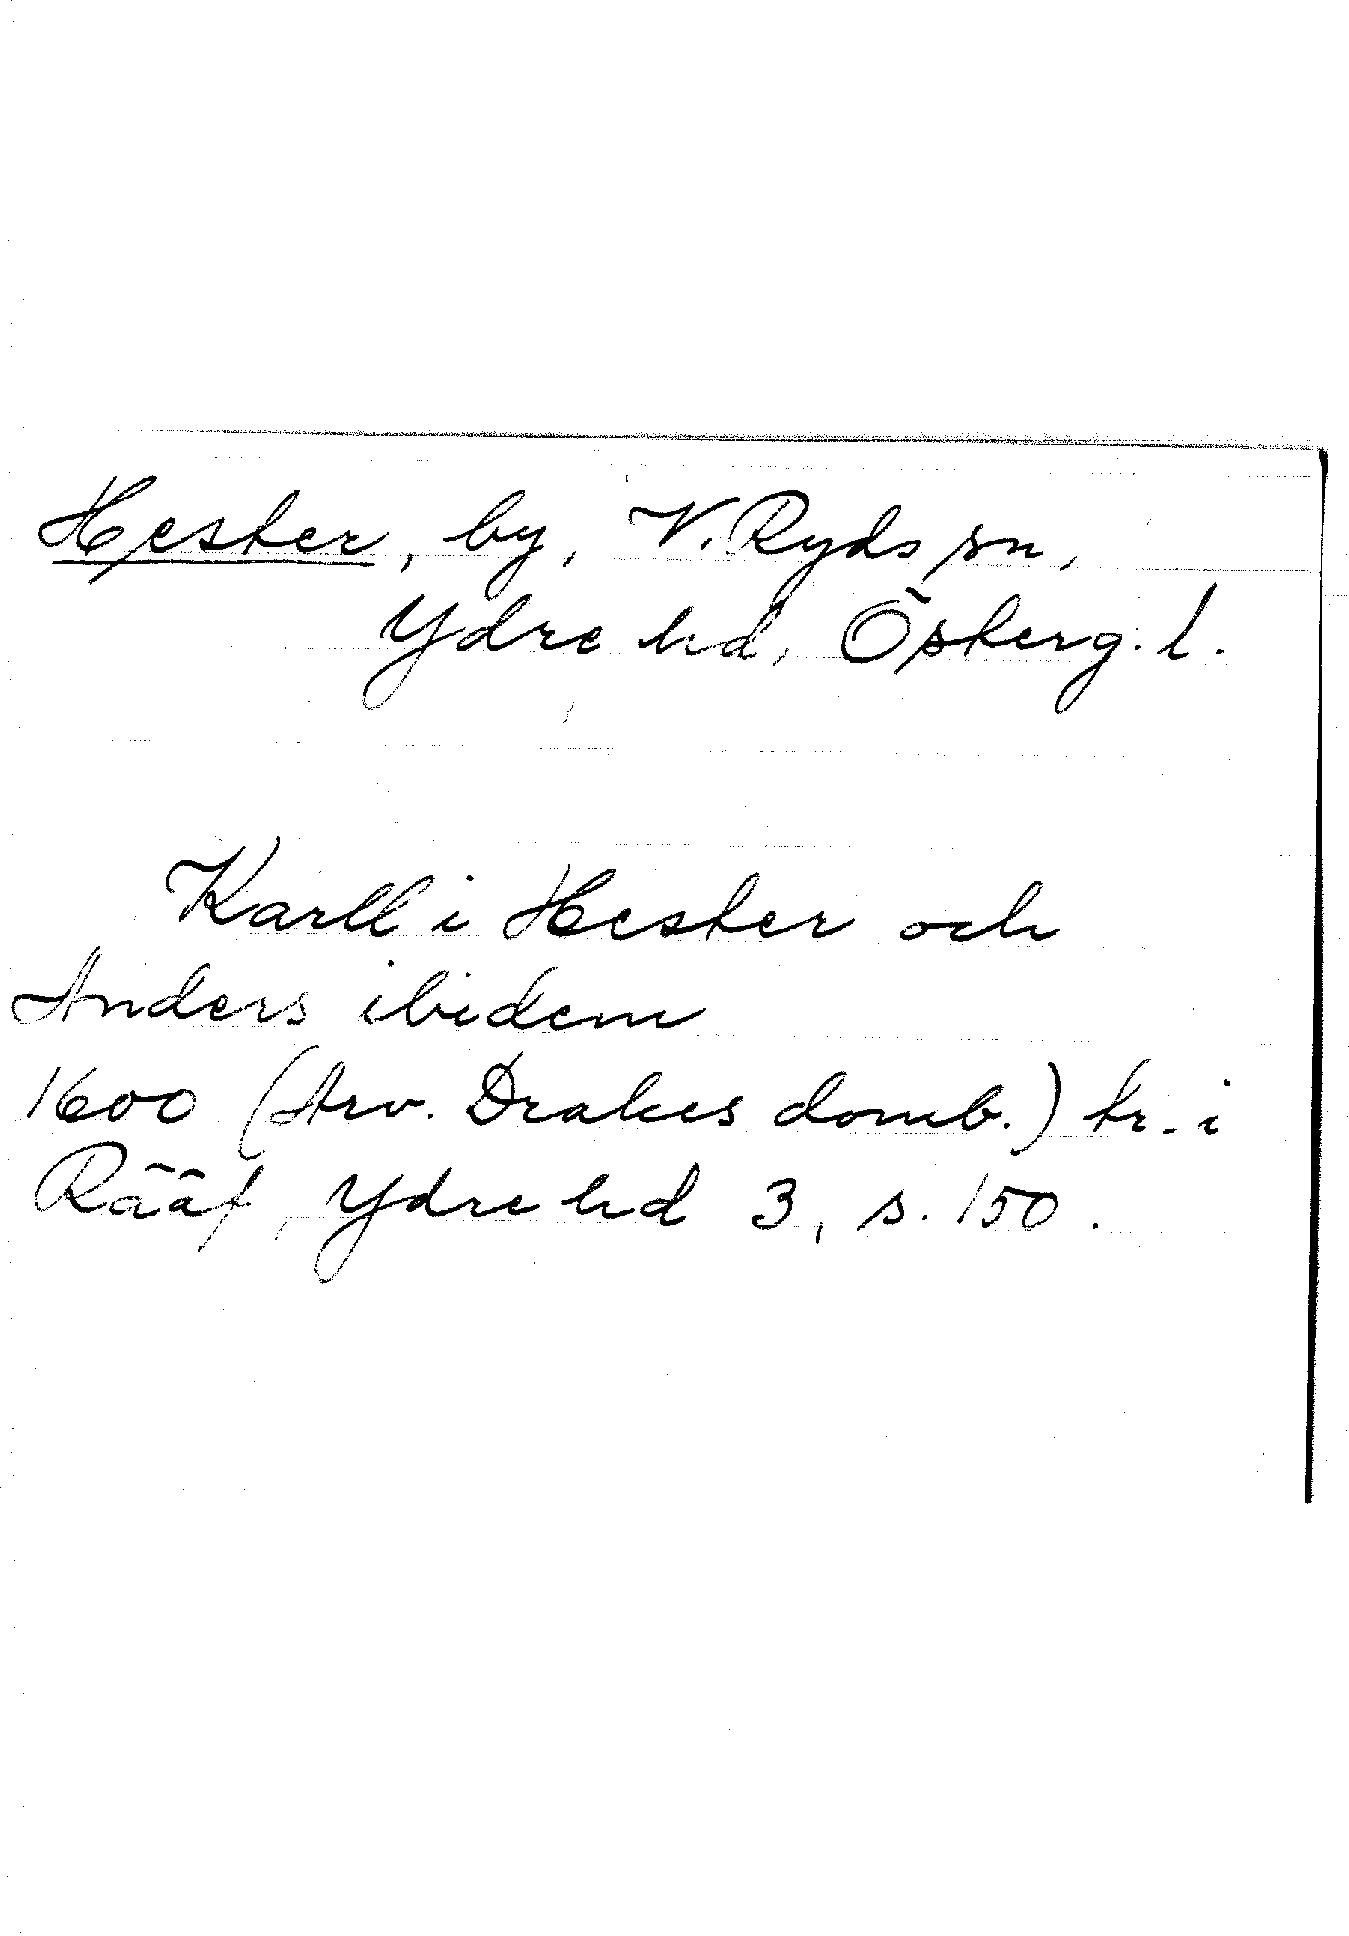 Hester, by, V. Ryds sn,
Ydre hd, Österg. l.
Karll i Hester och
Anders ibidem
1600 (Arv. Drakes domb.) tr. i
Rääf, Ydre hd 3, s. 150.